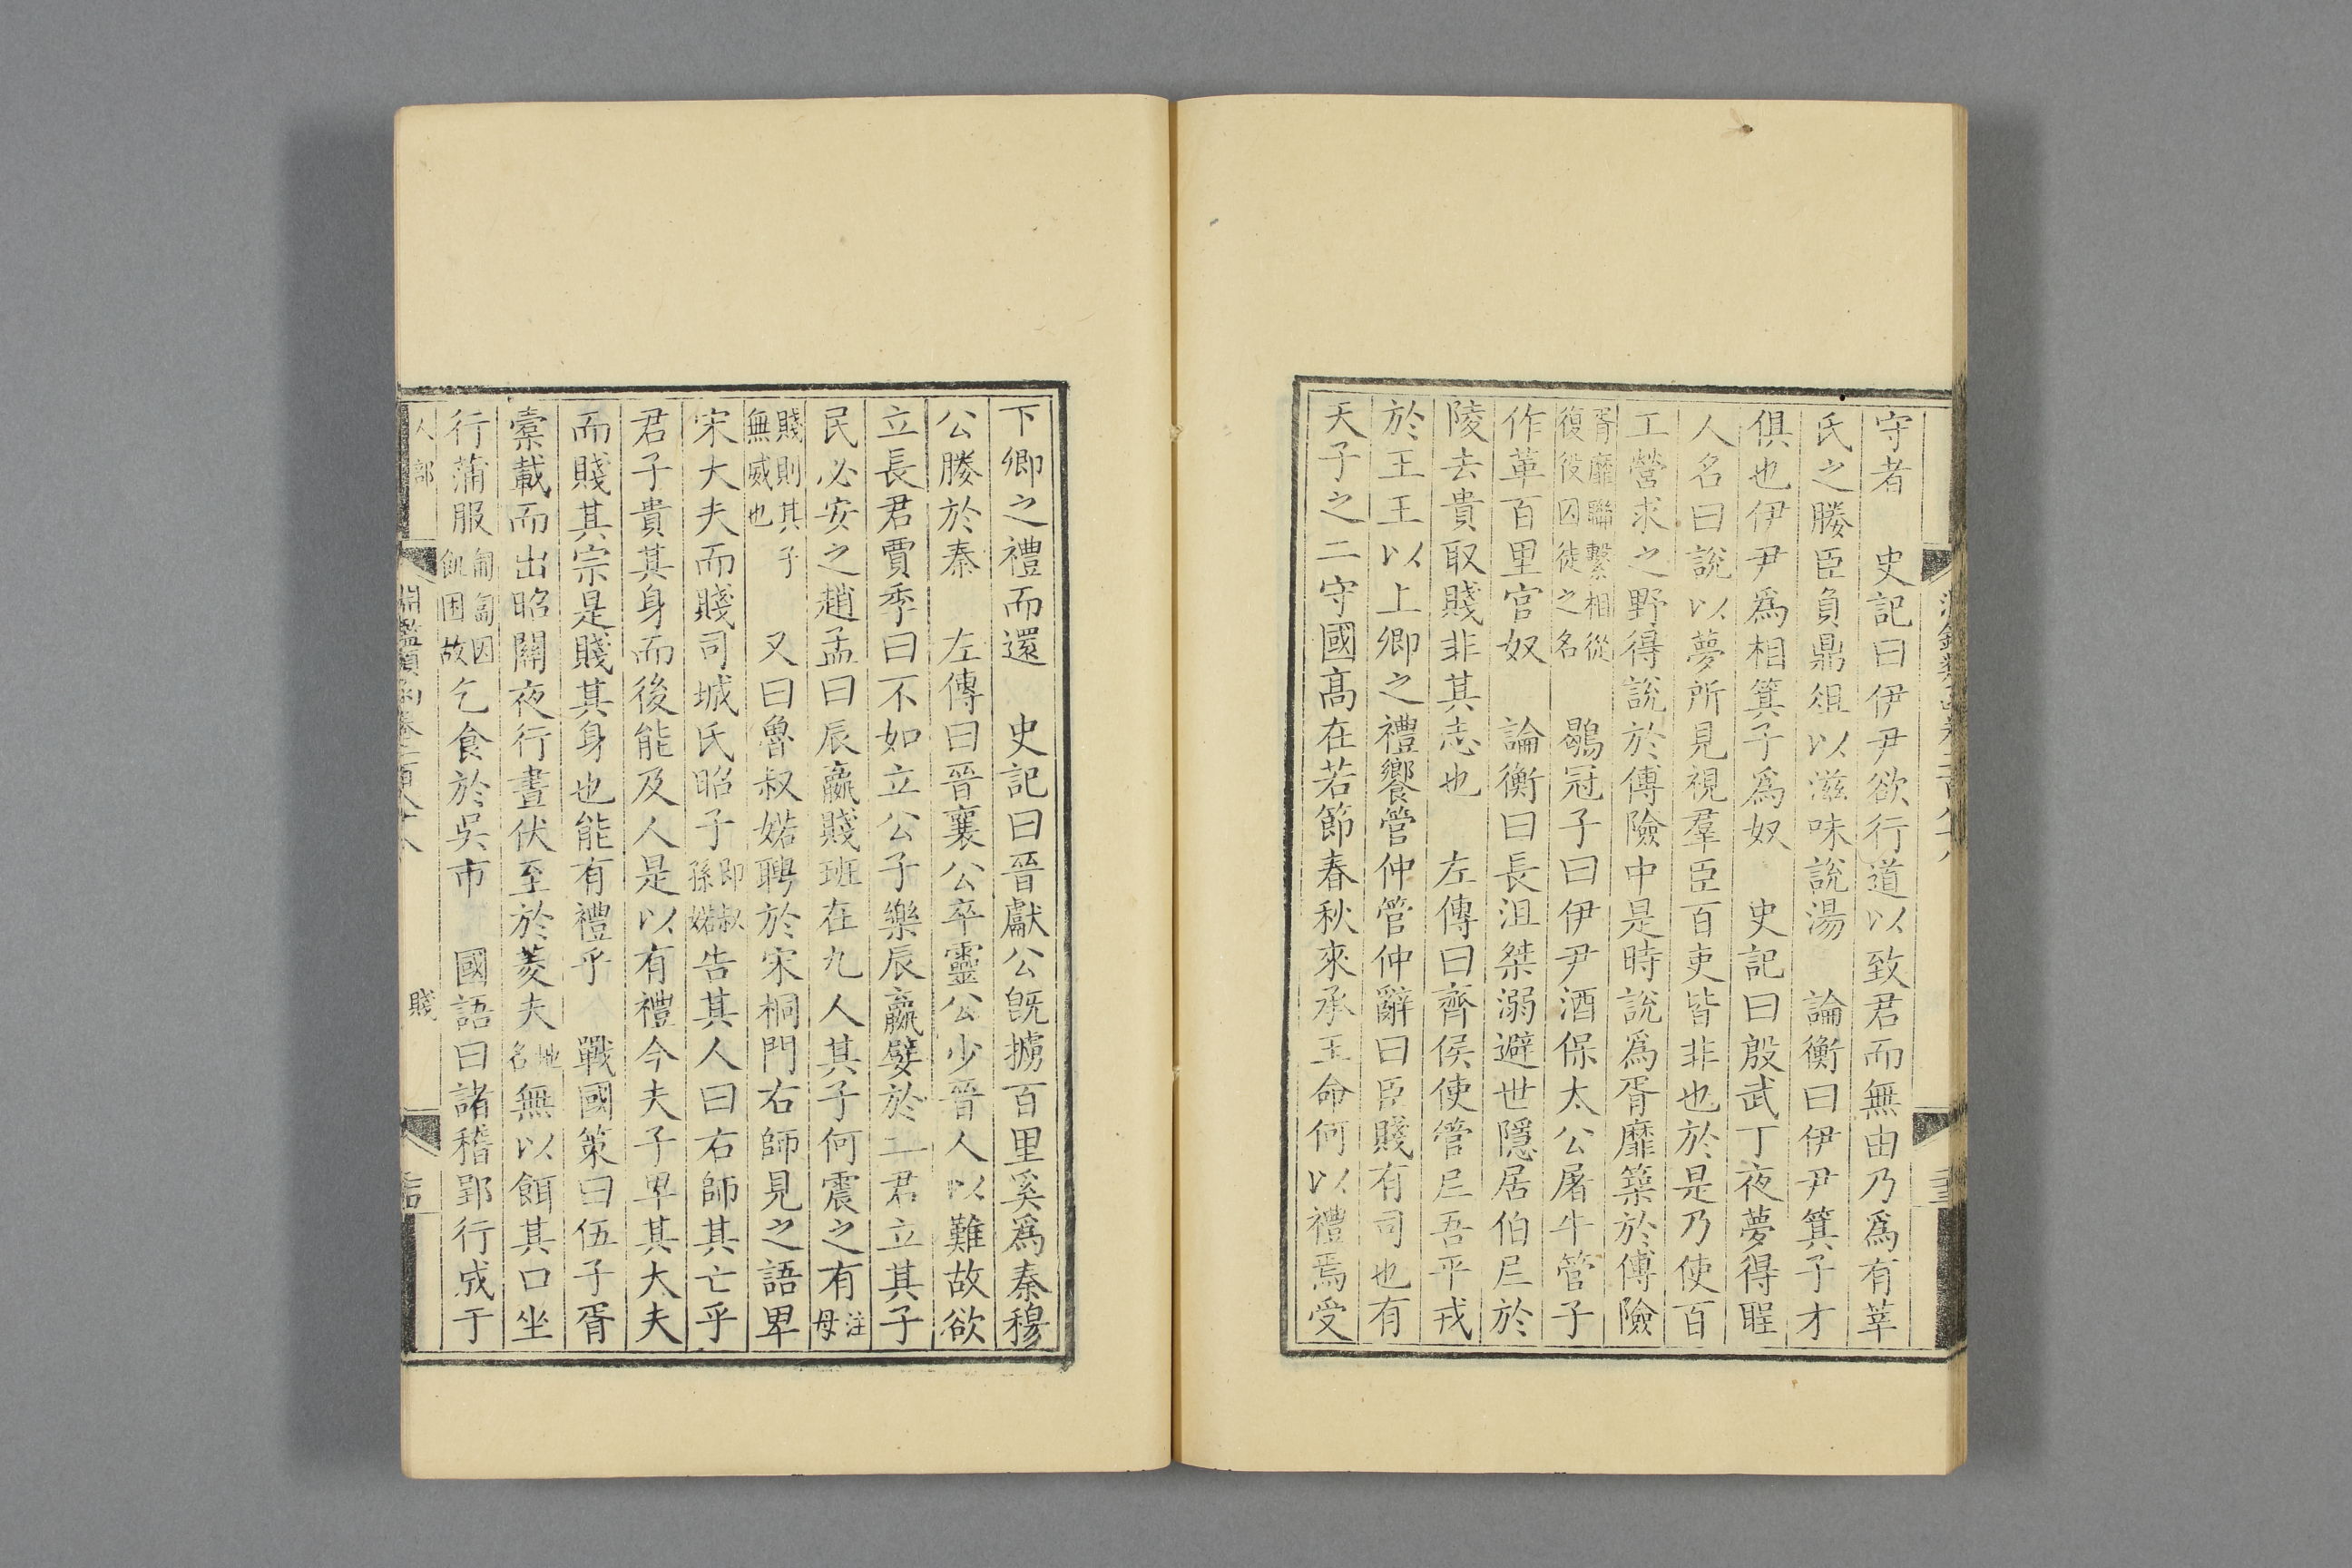 守者　史記曰伊尹欲行道以致君而無由乃爲有莘
氏之媵臣負鼎俎以滋味說湯　論衡曰伊尹箕子才
俱也伊尹爲相箕子爲奴　史記曰殷武丁夜夢得聖
人名曰說以夢所見視羣臣百吏皆非也於是乃使百
工營求之野得說於傅險中是時說爲胥靡築於傅險
胥靡聯繫相從
復役囚徒之名
鶡冠子曰伊尹酒保太公屠牛管子
作革百里官奴　論衡曰長沮桀溺避世隱居伯夷於
陵去貴取賤非其志也　左傳曰齊侯使管夷吾平戎
於王王以上卿之禮饗管仲管仲辭曰臣賤有司也有
天子之二守國高在若節春秋來承王命何以禮焉受
下卿之禮而還　史記曰晉獻公旣擄百里奚爲秦穆
公媵於秦　左傳曰晉襄公卒靈公少晉人以難故欲
立長君賈季曰不如立公子樂辰嬴嬖於二君立其子
民必安之趙孟曰辰嬴賤班在九人其子何震之有
注母
賤則其子
無威也
又曰魯叔婼聘於宋桐門右師見之語卑
宋大夫而賤司城氏昭子
即叔
孫婼
告其人曰右師其亡乎
君子貴其身而後能及人是以有禮今夫子卑其大夫
而賤其宗是賤其身也能有禮乎　戰國策曰伍子胥
橐載而出昭關夜行晝伏至於菱夫
地
名
無以餌其口坐
行蒲服
匍匐因
飢困故
乞食於吳市　國語曰諸稽郢行成于
人部
淵鑑類函卷二百八十八
賤